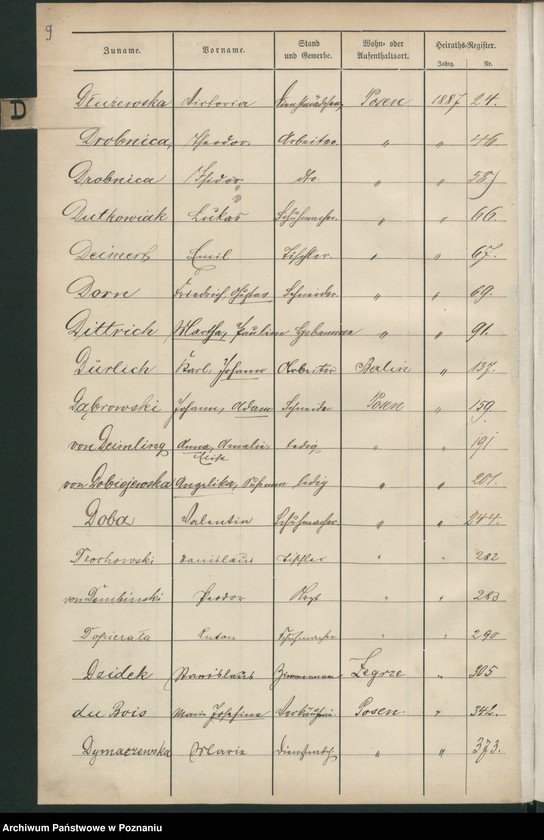 9
D
Zuname. Vorname. Stand und Gewerbe. Wohn- oder Aufenthaltsort. Heiraths-Register.
Jahrg. Nr.
Dłużewska Victoria Posen 1887 24.
Drobnica, Theodor. Arbeiter. " " 46.
Drobnica Isidor dto. " " 58)
Dutkowiak Lukas Schuhmacher. " " 66.
Deimert Emil Tischler. " " 67.
Dorn Friedrich, Gustav Schneider. " " 69.
Dittrich Martha, Pauline Hebamme " " 91.
Dürlich Karl, Johann Arbeiter Berlin " 137.
Dąbrowski Johann, Adam Schneider Posen " 159.
von Deimling Anna, Amalie ledig " " 191
Elise
von Dobiejewska Angelika, ledig " " 201.
Doba Valentin Schuhmacher. " " 244.
Drochowski Stanislaus Tischler " " 282
von Dembinski Theodor Arzt " " 283
Dopierała Anton Schuhmacher " " 290
Dzidek Stanislaus Zimmermann Zegrze " 305
du Bois Maria Josefina Verkäuferin. Posen. " 342.
Dymaczewska Maria Dienstmdch. " " 373.
Archiwum Państwowe w Poznaniu